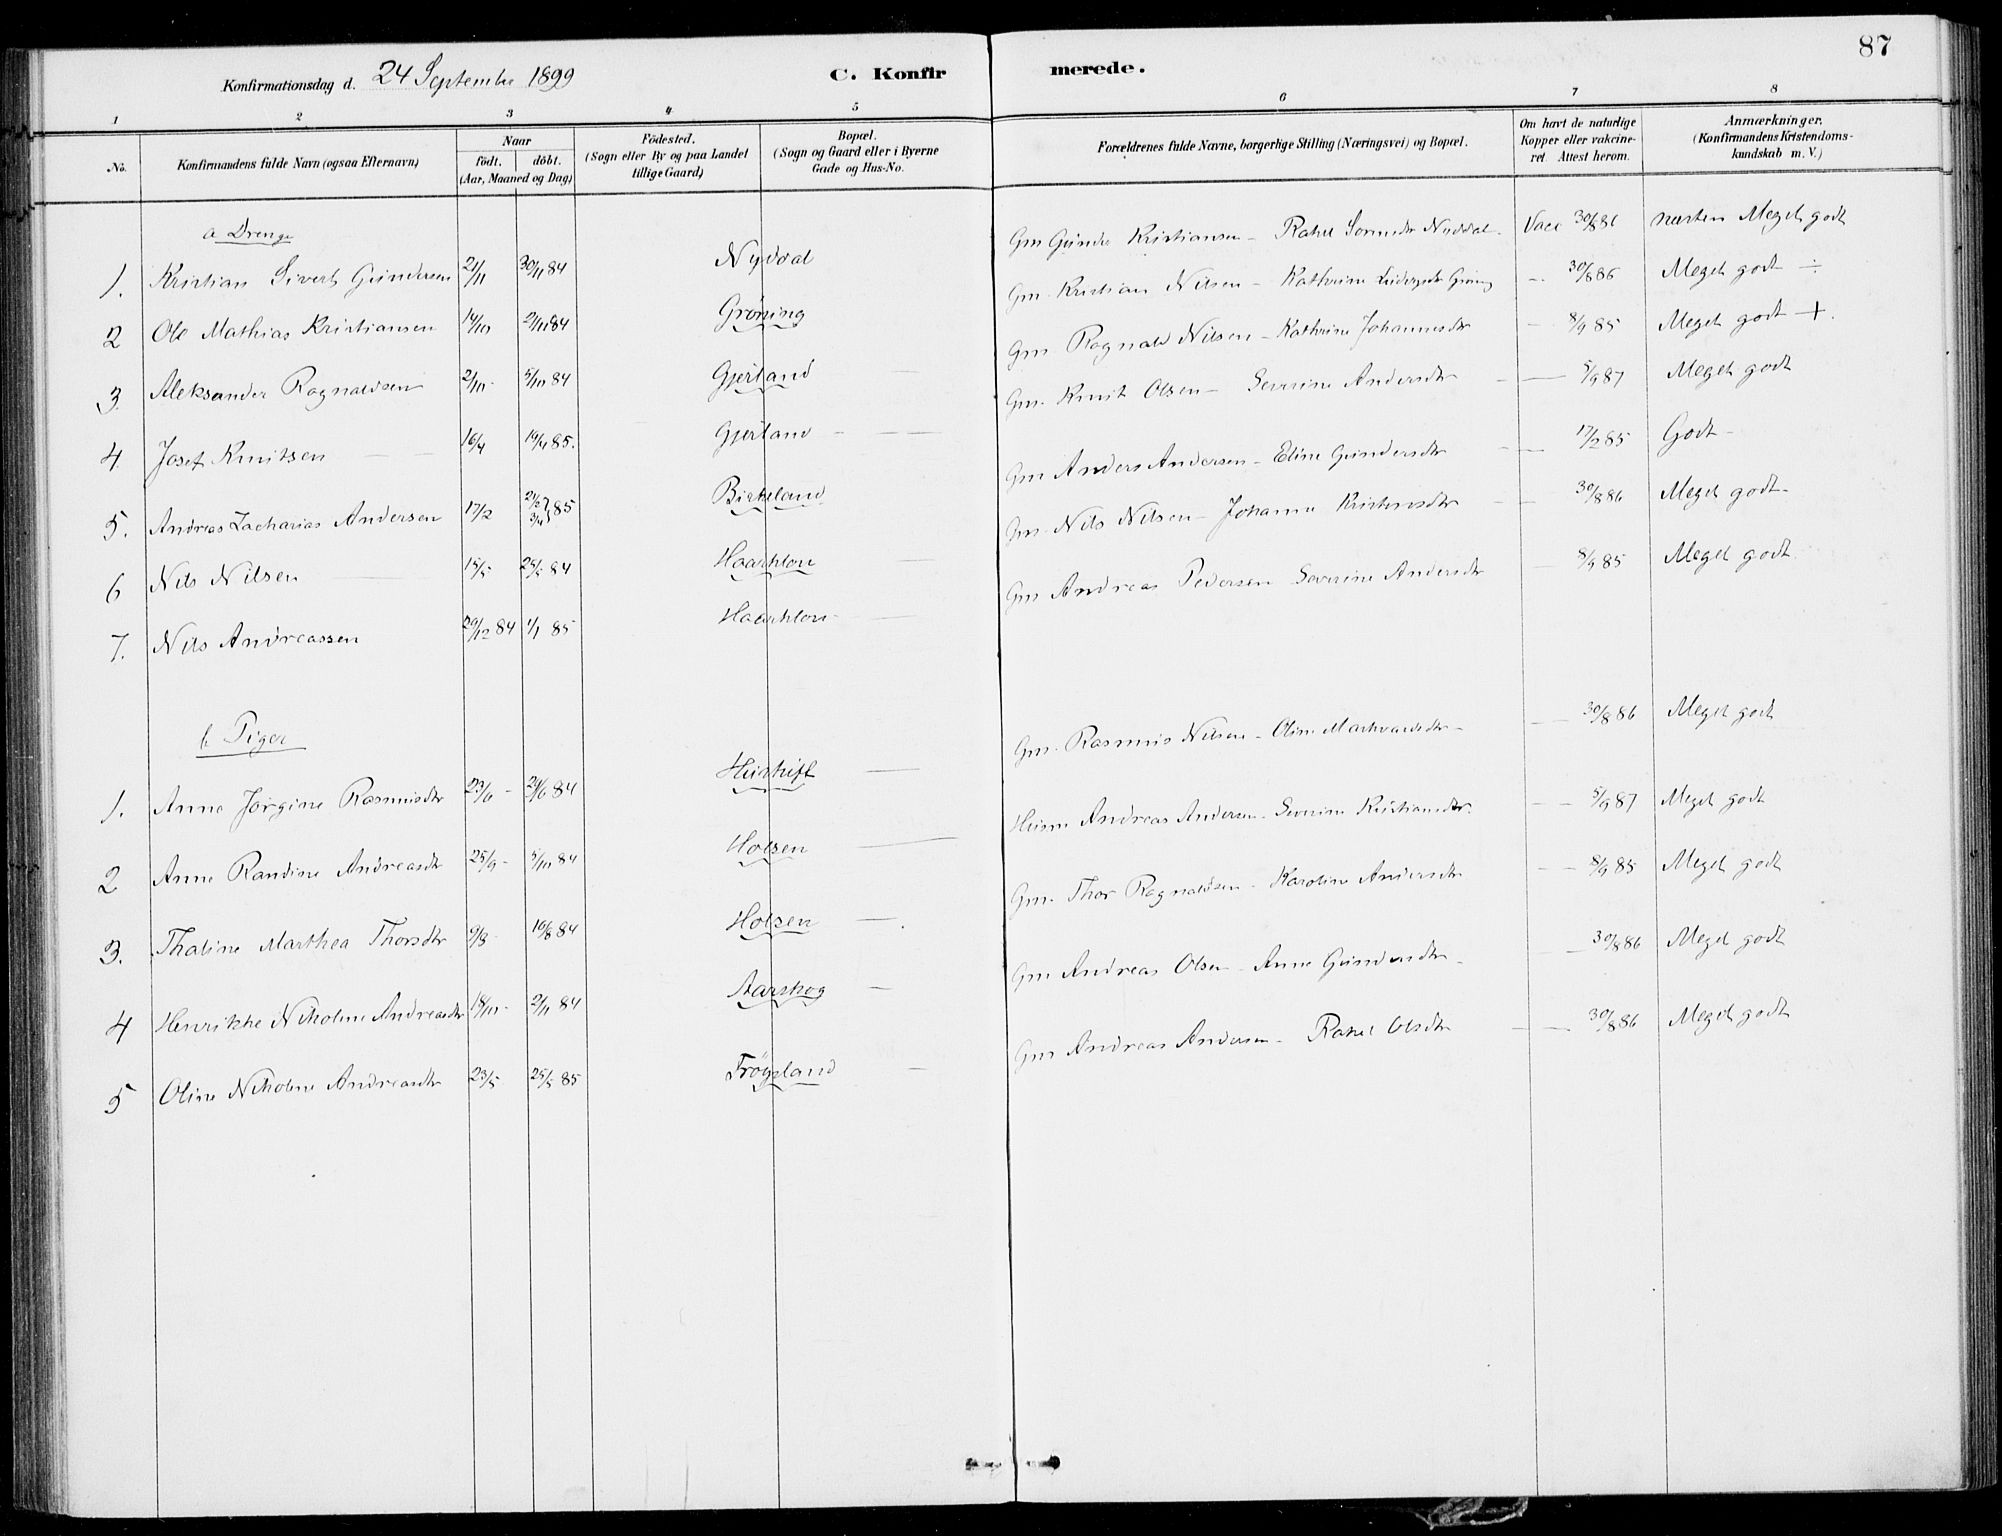 87
Konfirmationsdag d. 24 September 1899 C. Konfirmerede.
1 2 3 4 5 6 7 8
No. Konfirmandens fulde Navn (ogsaa Efternavn) Naar født. døbt. (Aar, Maaned og Dag) Fødested. (Sogn eller By og paa Landet tillige Gaard) Bopæl. (Sogn og Gaard eller i Byerne Gade og Hus-No. Forældrenes fulde Navne, borgerlige Stilling (Næringsvei) og Bopæl. Om havt de naturlige Kopper eller vakcineret. Attest herom. Anmærkninger. (Konfirmandens Kristendomskundskab m. V.)
a Drenge
1. Kristian Sivert Gundersen 21/11 30/11 84 Nyddal Gm Gunder Kristiansen - Rakel Nyddal. Vacc 30/8 86 næsten Meget godt
2 Ole Mathias Kristiansen 14/10 2/11 84 Grøning Gm. Kristian Nilsen - Kathrine Grøning - 30/8 86 Meget godt ÷
3. Aleksander Ragnaldsen 2/10 - 5/10 84 Gjerland Gm. Ragnald Nilsen - Kathrine Johannesdtr - 8/9 85 Meget godt +.
4 Josef Knutsen 16/4 19/4 85. Gjerland Gm. Knut Olsen - Severine Andersdtr - 5/9 87 Meget godt
5. Andreas Zacharias Andersen 17/2 3/4 85 Birkeland Gm Anders Andersen - Eline Gundersdtr - 17/2 85 Godt -
6 Nils Nilsen 15/5 25/5 84 Haarklou Gm. Nils Nilsen - Johanne Kristensdtr - 30/8 86 Meget godt -
7. Nils Andreassen 29/12 84 1/1 85 Haarklou - Gm Andreas Pedersen Severine Andersdtr - 8/9 85 Meget godt.
b Piger
1. Anne Jørgine Rasmusdtr 23/6 - 29/6 84 Huskift Gm. Rasmus Nilsen - Oline Markvardsdtr - 30/8 86 Meget godt
2 Anne Randine Andreasdtr 25/9 - 5/10 84 Holsen Husm Andreas Andersen - Severine Kristiansdtr. - 5/9 87 Meget godt
3. Thaline Marthea Thorsdtr 9/8 - 10/8 84 Holsen Gm. Thor Ragnaldsen - Karoline Andersdtr - 8/9 85 Meget godt
4 Henrikke Nikoline Andreasdtr 18/10 - 2/11 84 Aarskog Gm Andreas Olsen - Anne Gundersdtr - 30/8 86 Meget godt
5 Oline Nikoline Andreasdtr 23/5 25/5 85 Trøgsland Gm Andreas Andersen - Rakel Olsdtr - 30/8 86 Meget godt